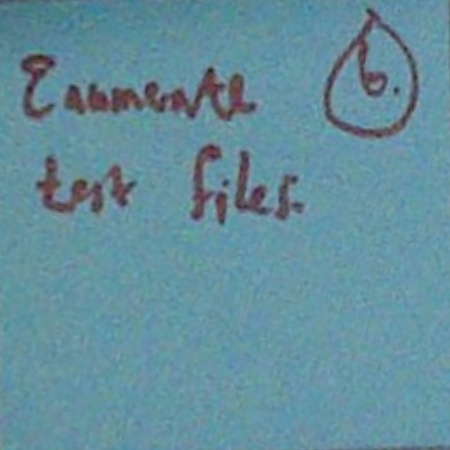 Enumerate 6.
test files.